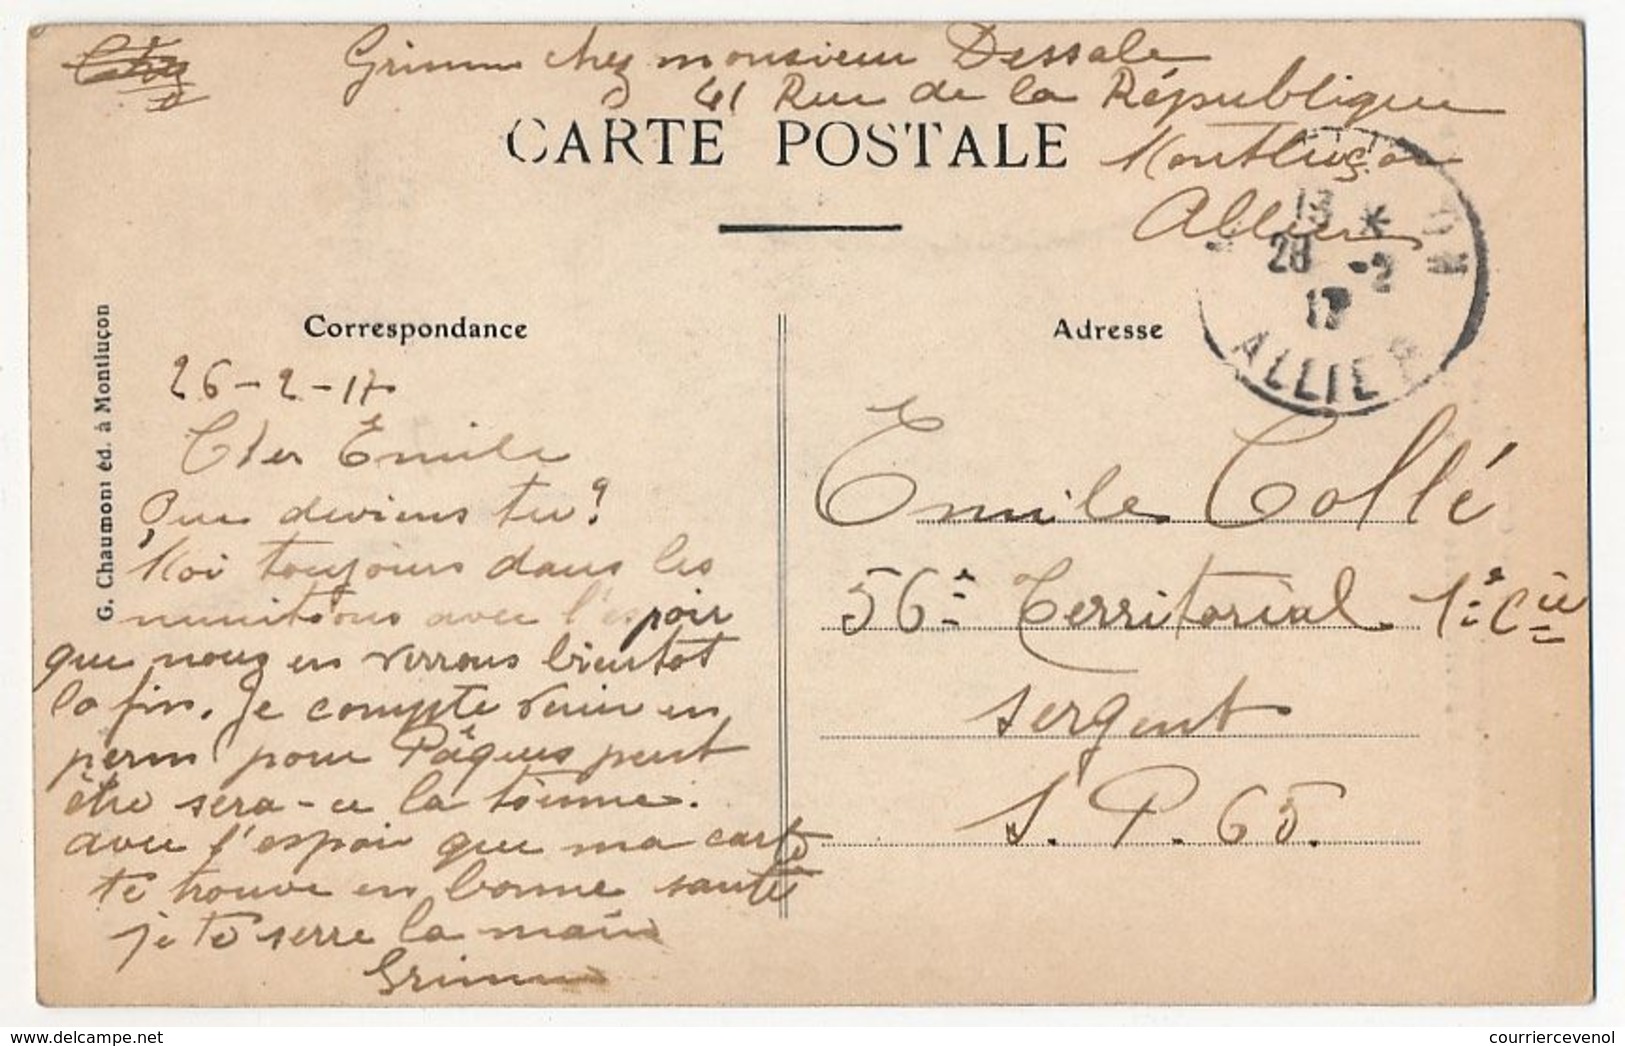 Grimm chez monsieur Dessale
41 Rue de la République
CARTE POSTALE
Montluçon
Allier
13 *
28 -2
17
ALLIER
Correspondance
Adresse
G. Chaumont éd. à Montluçon
26-2-17
Cher Emile
Que deviens tu?
Moi toujours dans les
munitions avec l'espoir
que nous en verrons bientot
la fin. Je compte venir en
perm pour Pâques peut
être sera-ce la bonne.
avec l'espoir que ma carte
te trouve en bonne santé
je te serre la main
Grimm
Emile Collé
56è Territorial 1è Cie
sergent
S. P. 65.
courriercevenol